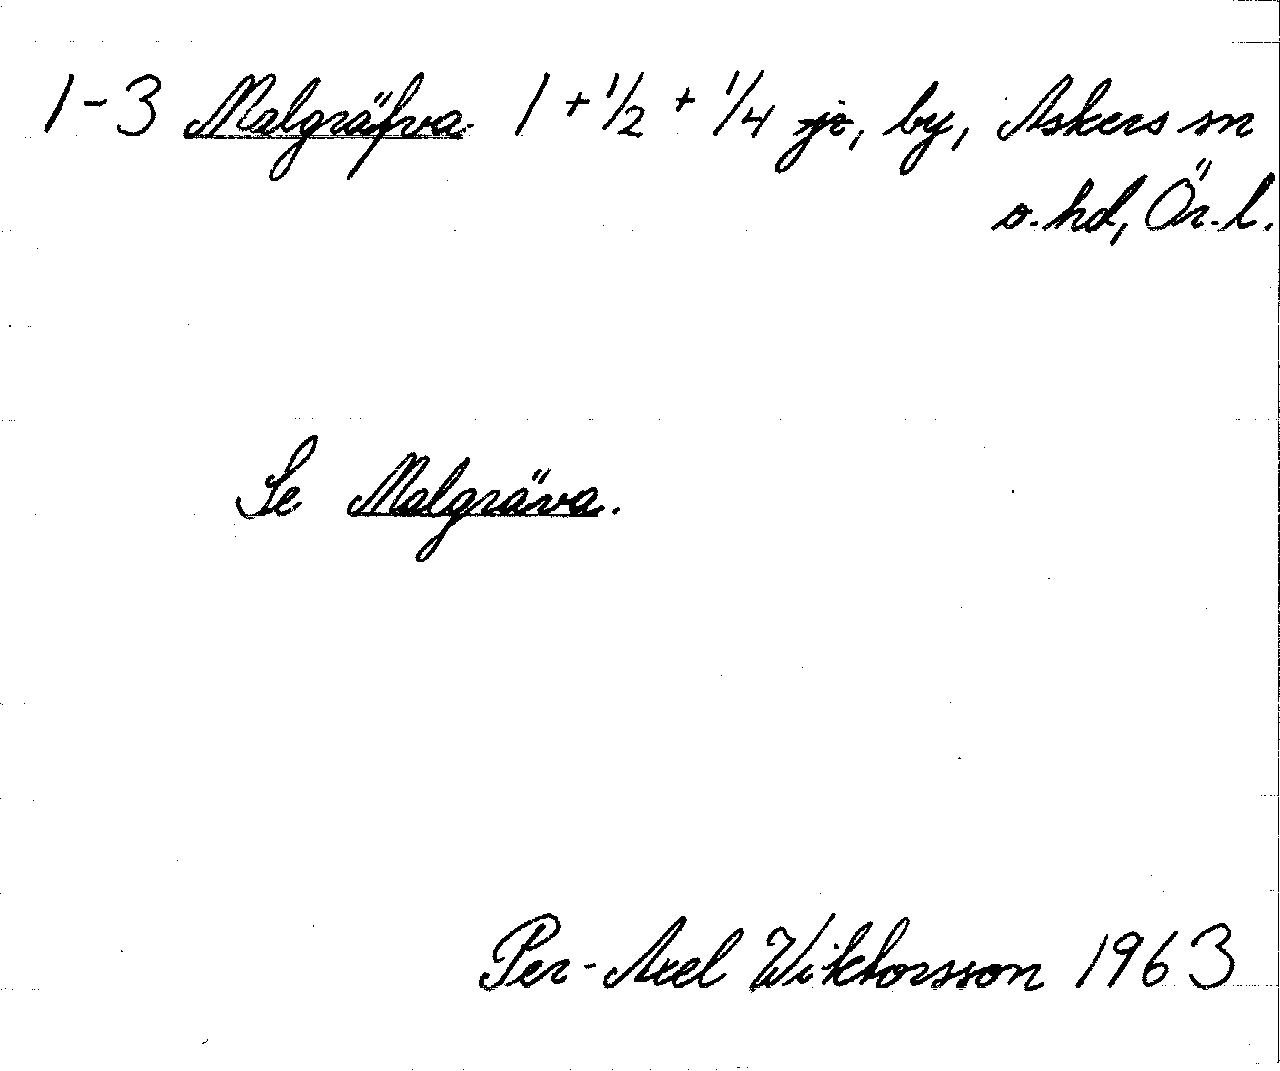 1-3 Malgräfva 1 + 1/2 + 1/4 jr, by, Askers sn
o. hd, Ör. l.
Se Malgräva.
Per-Axel Wiktorsson 1963